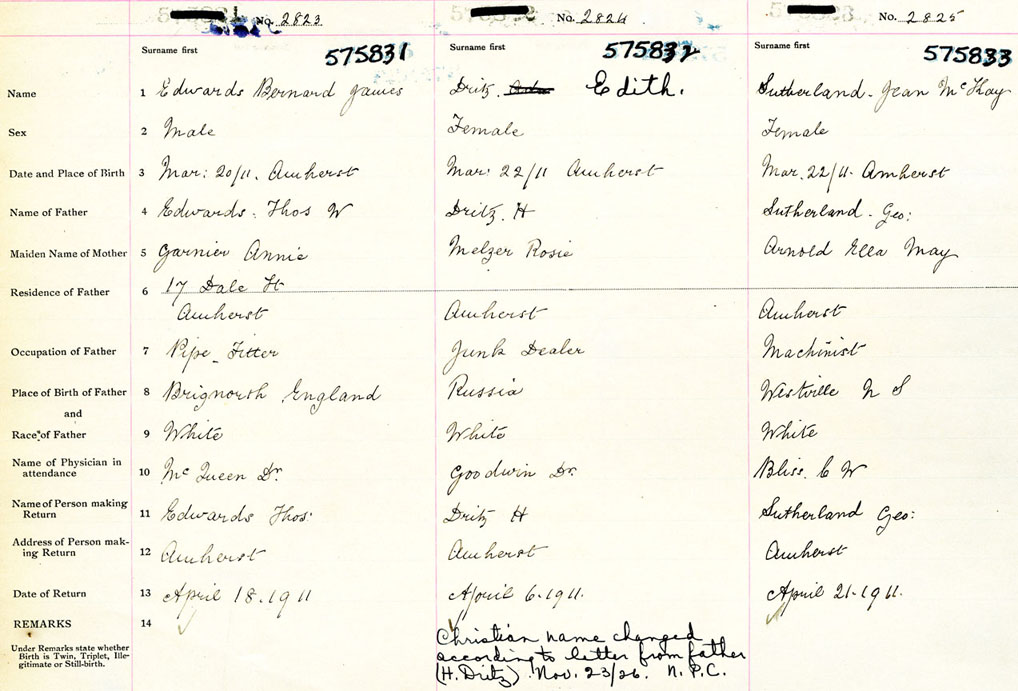 No. 2823 No. 2824 No. 2825
Surname first Surname first Surname first
575831 575832 575833
Name 1 Edwards Bernard James Dritz. Edith. Sutherland. Jean McKay
Sex 2 Male Female Female
Date and Place of Birth 3 Mar: 20/11. Amherst Mar: 22/11 Amherst Mar. 22/11. Amherst
Name of Father 4 Edwards. Thos W Dritz. H Sutherland. Geo:
Maiden Name of Mother 5 Garnier Annie Melzer Rosie Arnold Ella May
Residence of Father 6 17 Dale St
Amherst Amherst Amherst
Occupation of Father 7 Pipe-Fitter Junk Dealer Machinist
Place of Birth of Father 8 Brignorth England Russia Westville N S
and
Race of Father 9 White White White
Name of Physician in
attendance 10 McQueen Dr. Goodwin Dr. Bliss. C W
Name of Person making
Return 11 Edwards Thos: Dritz H Sutherland Geo:
Address of Person mak-
ing Return 12 Amherst Amherst Amherst
Date of Return 13 April 18.1911 April 6.1911. April 21.1911.
REMARKS 14
Under Remarks state whether
Birth is Twin, Triplet, Ille-
gitimate or Still-birth.
Christian name changed
according to letter from father
(H. Dritz). Nov. 23/26. N.P.C.